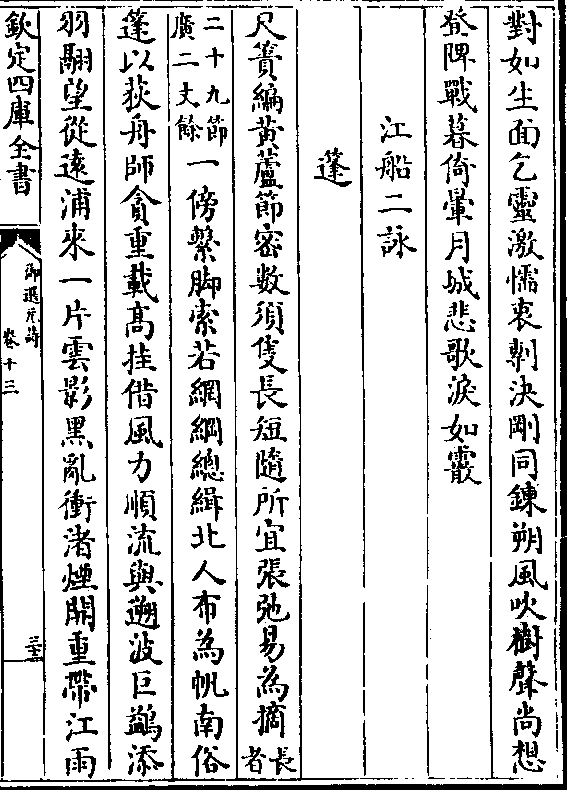 對如生面乞靈激懦衷剸決剛同鍊朔風吹樹聲尚想
登陴戰暮倚暈月城悲歌淚如霰
江船二詠
篷
尺簀編黄蘆節密數須隻長短隨所宜張弛易為摘長者
二十九節廣二丈餘一傍繫脚索若網綱總緝北人布為帆南俗
篷以荻舟師貪重載髙挂借風力順流與遡波巨鷁添
羽翮望從遠浦來一片雲影黒亂衝渚煙開重帶江雨
欽定四庫全書
御選元詩
卷十三
三十二